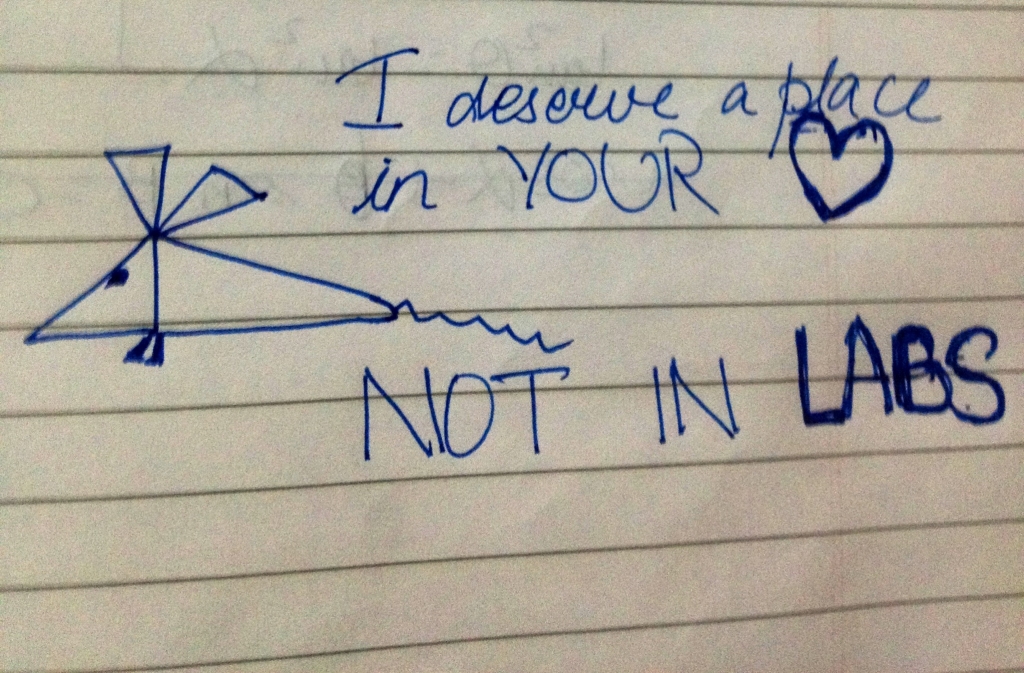 I deserve a place
in YOUR
NOT IN LABS